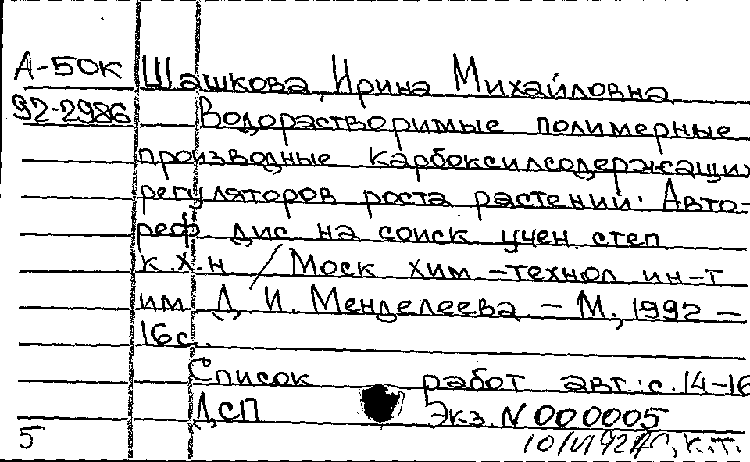 А-50К Шашкова, Ирина Михайловна
92-2986 Водорастворимые полимерные
производные карбоксилсодержащих
регуляторов роста растений: Авто-
реф. дис на соиск учен степ
к.х.н / Моск хим-технол ин-т
им Д. И. Менделеева - М., 1992 -
16с.
Список работ авт.: с. 14-16
ДСП Экз. N 000005
5 10/VI 92